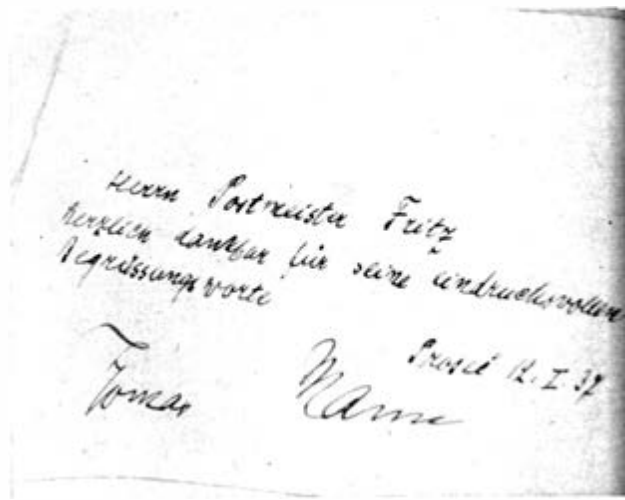 Herrn Postmeister Fritz
herzlich dankbar für seine eindrucksvollen
Begrüssungsworte
Proseč 12. I. 37
Tomas Mann